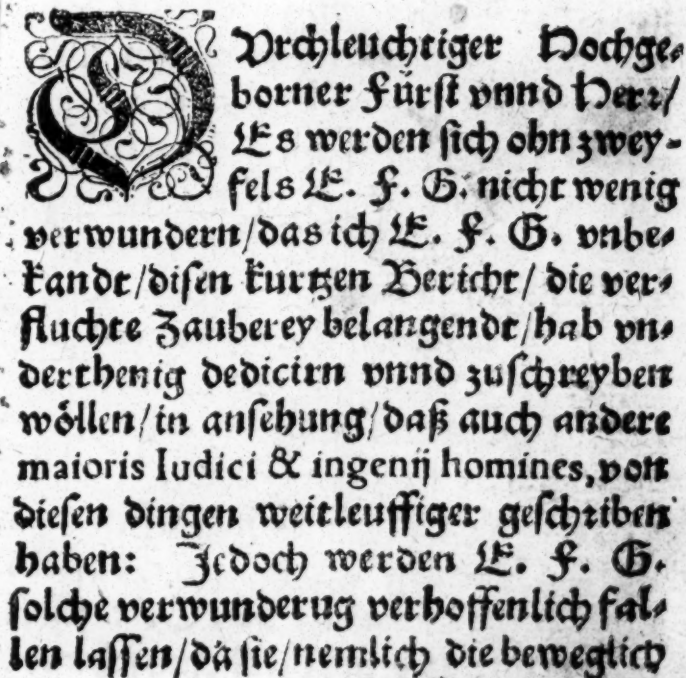 DVrchleuchtiger Hochge⸗
borner Fürst vnnd Herr/
Es werden sich ohn zwey-
fels E. F. G. nicht wenig
verwundern/das ich E. F. G. vnbe⸗
kandt/disen kurtzen Bericht/ die ver⸗
fluchte Zauberey belangendt/hab vn⸗
derthenig dedicirn vnnd zuschreyben
wöllen/in ansehung/daß auch andere
maioris Iudici & ingenij homines,von
diesen dingen weitleuffiger geschriben
haben: Jedoch werden E. F. G.
solche verwunderug verhoffenlich fal⸗
len lassen/dä sie/nemlich die beweglich